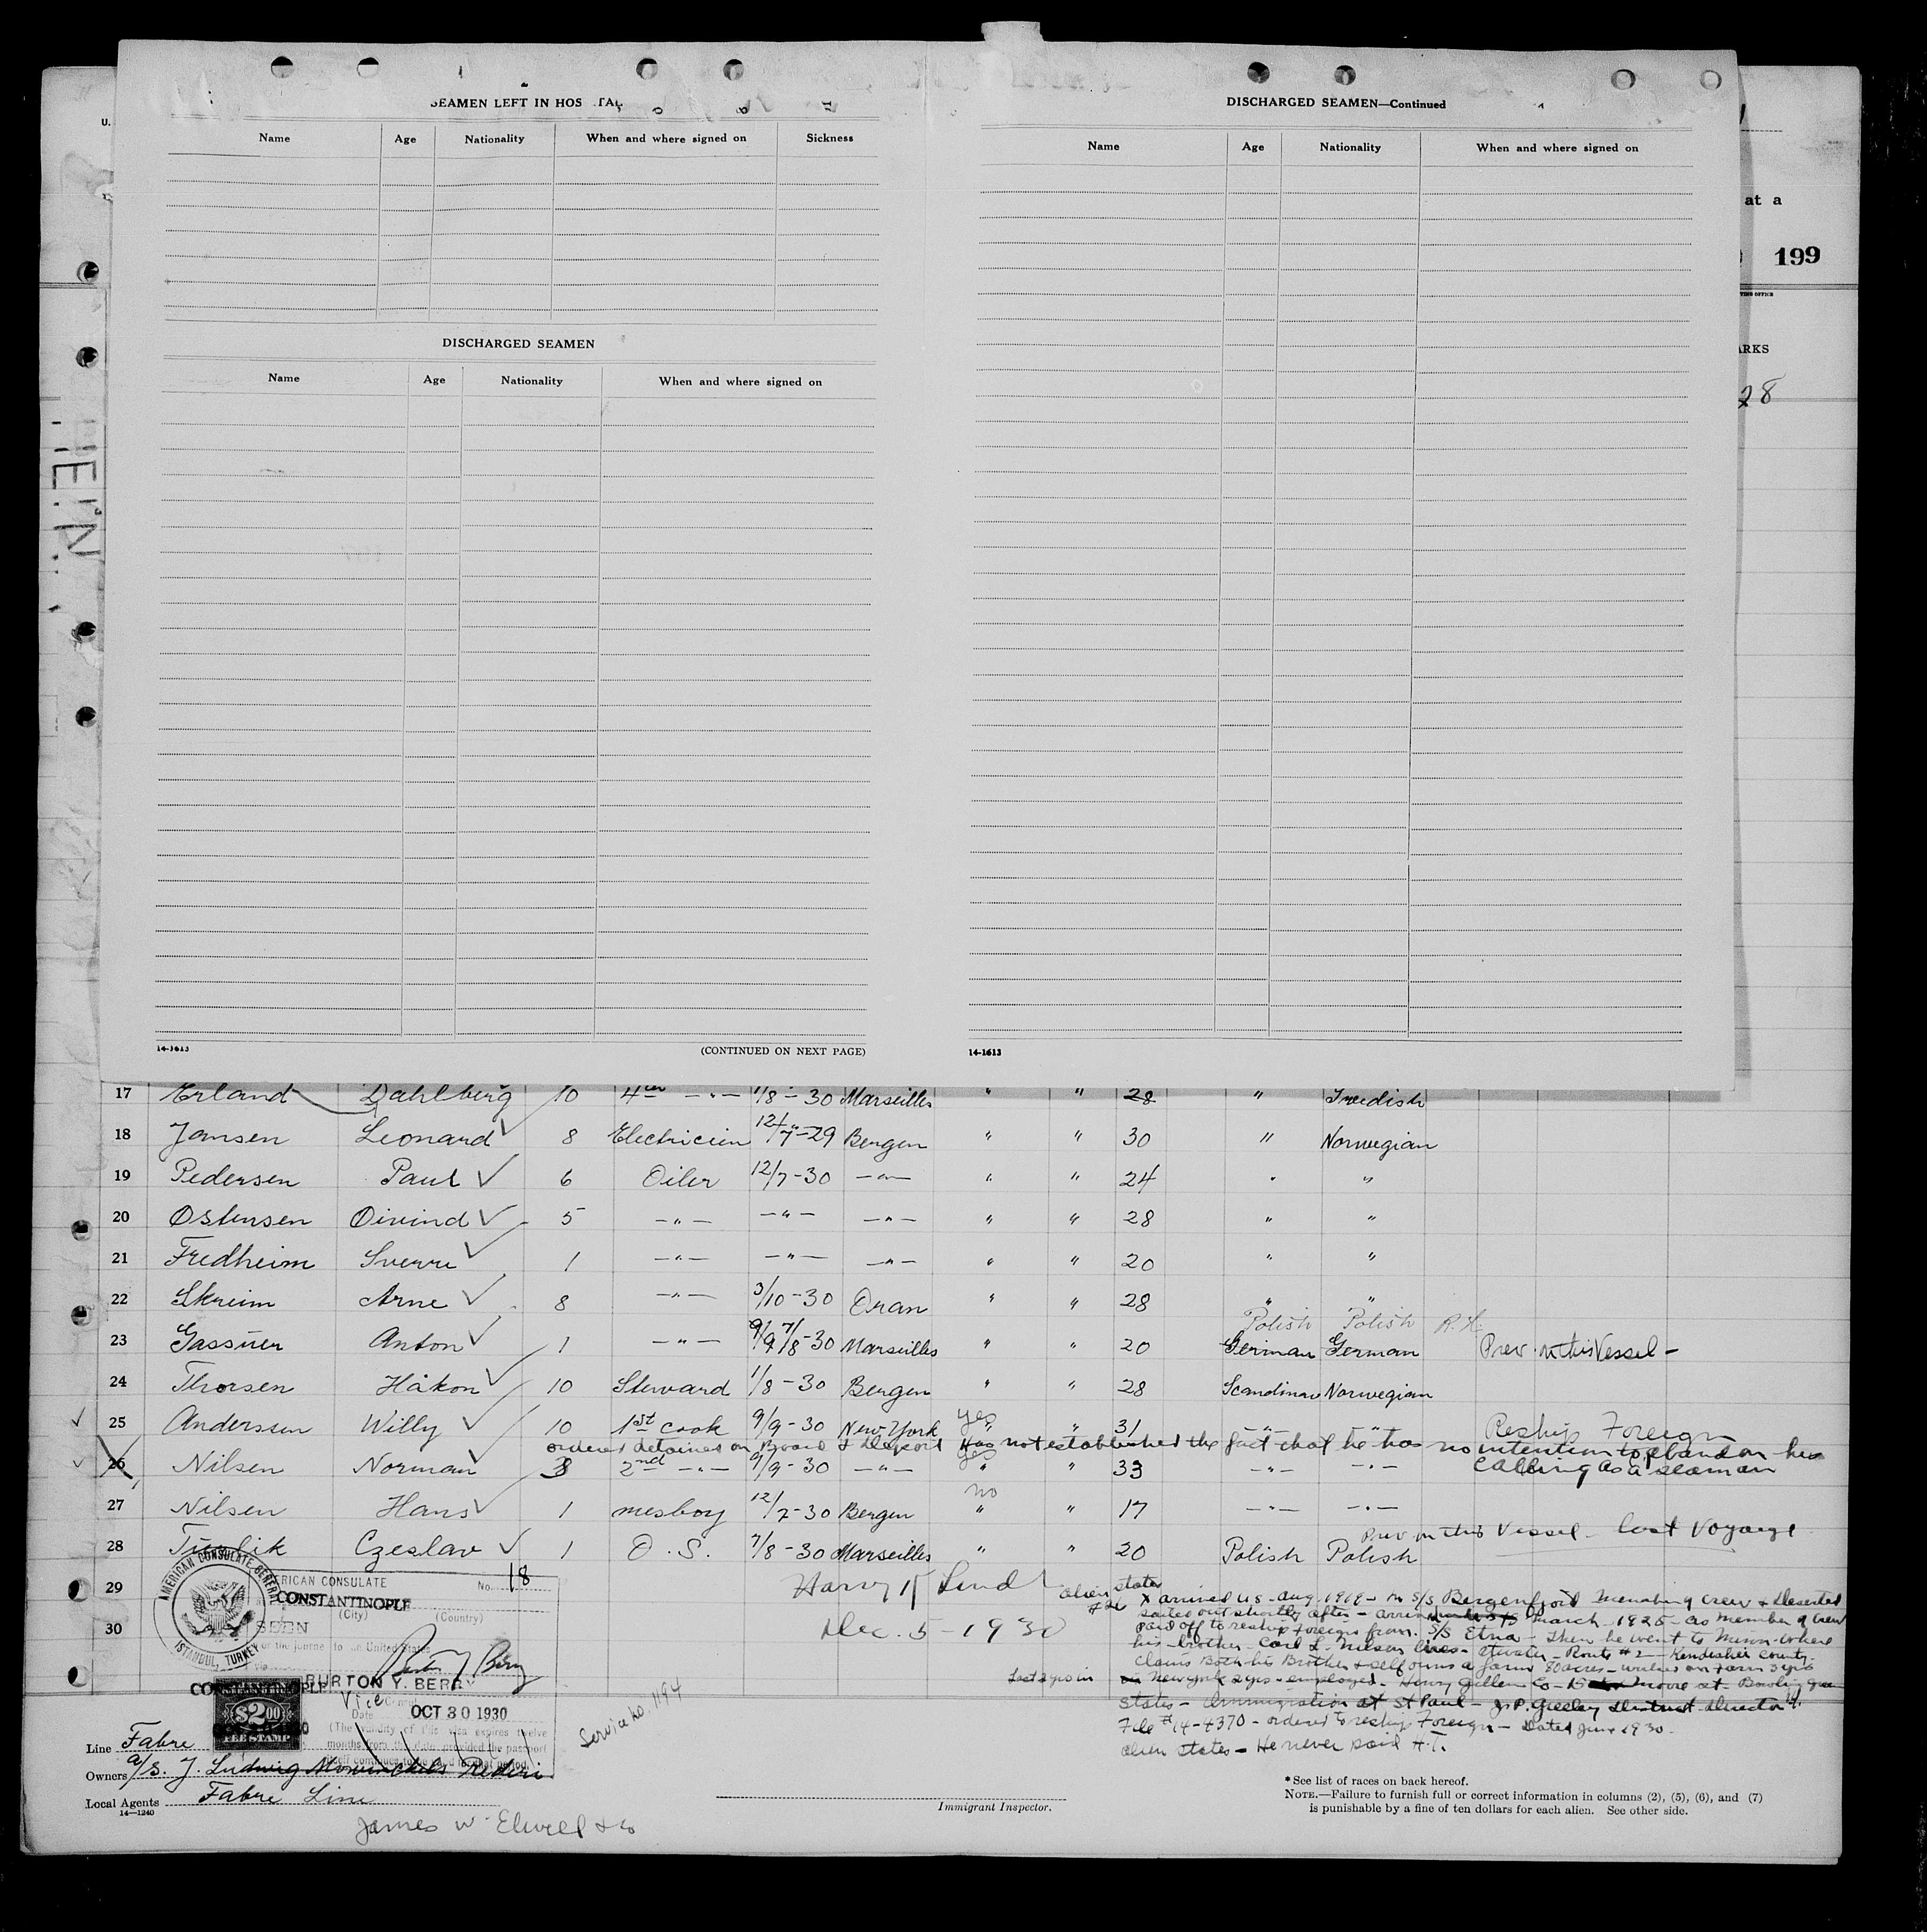 SEAMEN LEFT IN HOS TAL
Name Age Nationality When and where signed on Sickness
DISCHARGED SEAMEN
Name Age Nationality When and where signed on
14-1613 (CONTINUED ON NEXT PAGE)
DISCHARGED SEAMEN—Continued
Name Age Nationality When and where signed on
14-1613
U.
at a
199
ARKS
28
17 Erland Dahlberg 10 4 — " — 1/8 - 30 Marseilles " " 28 " Swedish
18 Jansen Leonard 8 Electricien 12/7-29 Bergen " " 30 " Norwegian
19 Pedersen Paul 6 Oiler 12/7-30 — " — " " 24 " "
20 Ostensen Oivind 5 — " — — " — — " — " " 28 " "
21 Fredheim Sverre 1 — " — — " — — " — " " 20 " "
22 Skreim Arne 8 — " — 3/10-30 Oran " " 28 " "
Polish Polish R.H.
23 Gassner Anton 1 — " — 7/8-30 Marseilles " " 20 German German Prev. in this Vessel -
24 Thorsen Håkon 10 Steward 1/8-30 Bergen " " 28 Scandinav Norwegian
25 Anderssen Willy 10 1st cook 9/9-30 New-York yes " 31 — " — — " — Reship Foreign
ordered detained on Board & Deport Has not established the fact that he has no intention to abandon his
calling as a seaman
26 Nilsen Norman 8 2nd — " — 9/9-30 — " — yes " 33 — " — — " —
27 Nilsen Hans 1 mesboy 12/7-30 Bergen no " " 17 — " — — " —
Prev on this Vessel - last Voyage
28 Czeslav 1 O.S. 7/8-30 Marseilles " " 20 Polish Polish
29
30
Dec. 5-1930
alien states
#26 X arrived US - Aug 1919 - on S/S Bergenfjord member of crew & Deserted
sailed out shortly after - March 1925 - as member of crew
paid off to reship foreign from S/S Etna - Then he went to Minn - where
his - brother - Carl L. Nilson lives - Atwater - Route #2 - County
Claims Both his Brother & self owns a farm 80 acres - works on farm 3 yrs
Last 2 yrs in New York 2 yrs - employed - Henry Gillen Co - 15 Moore st - Bowling green
States - Immigration at St Paul - J. P. Greeley District Director
File # 14-4370 - ordered to reship Foreign - Dated June 1930
alien states - He never paid H.T.
AMERICAN CONSULATE GENERAL
ISTANBUL, TURKEY
RICAN CONSULATE No. 18
CONSTANTINOPLE
(City) (Country)
SEEN
For the journey to United States
BURTON Y. BERRY
Vice Consul
CONSTANTINOPLE
Date OCT 30 1930
$2.00
FEE STAMP
(The validity of this visa expires twelve
months from this date provided the passport
itself continues to be valid for that period)
Service No. 1194
Line Fabre
Owners A/S. J. Ludwig Mowinckels Rederi
Local Agents Fabre Line
14—1240
James W. Elwell & Co
Immigrant Inspector.
* See list of races on back hereof.
NOTE.—Failure to furnish full or correct information in columns (2), (5), (6), and (7)
is punishable by a fine of ten dollars for each alien. See other side.